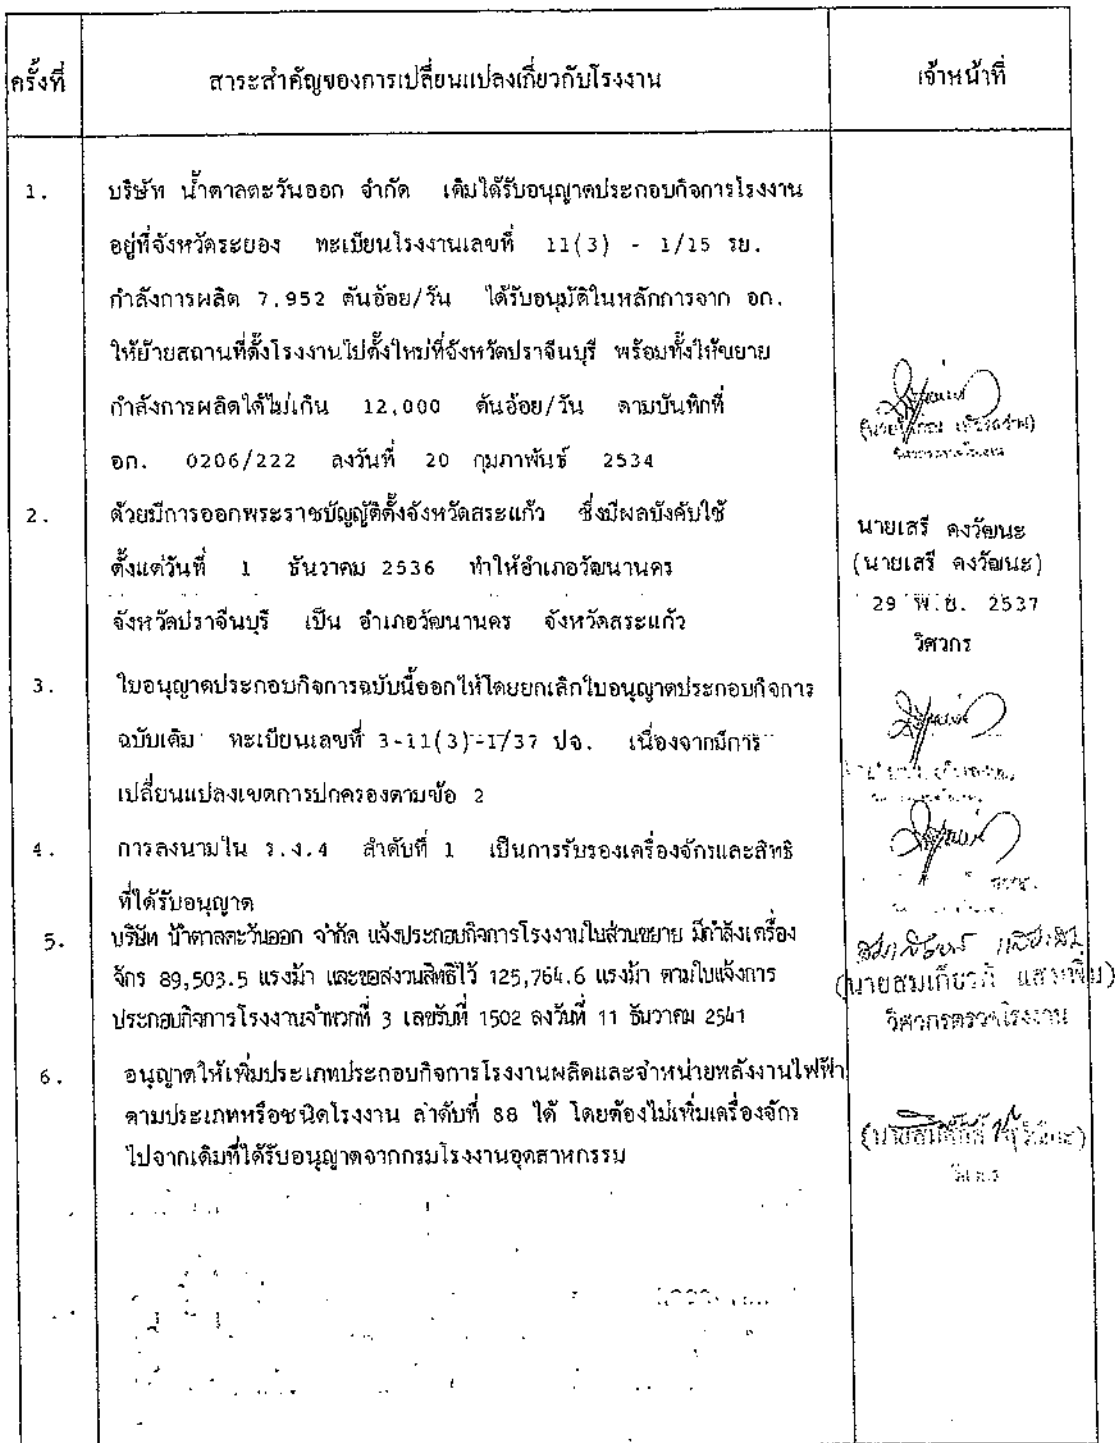 ครั้งที่
สาระสำคัญของการเปลี่ยนแปลงเกี่ยวกับโรงงาน
เจ้าหน้าที่
1. บริษัท น้ำตาลตะวันออก จำกัด เดิมได้รับอนุญาตประกอบกิจการโรงงาน
อยู่ที่จังหวัดระยอง ทะเบียนโรงงานเลขที่ 11(3) - 1/15 รย.
กำลังการผลิต 7,952 ตันอ้อย/วัน ได้รับอนุมัติในหลักการจาก อก.
ให้ย้ายสถานที่ตั้งโรงงานไปตั้งใหม่ที่จังหวัดปราจีนบุรี พร้อมทั้งให้ขยาย
กำลังการผลิตได้ไม่เกิน 12,000 ตันอ้อย/วัน ตามบันทึกที่
อก. 0206/222 ลงวันที่ 20 กุมภาพันธ์ 2534
2. ด้วยมีการออกพระราชบัญญัติตั้งจังหวัดสระแก้ว ซึ่งมีผลบังคับใช้
ตั้งแต่วันที่ 1 ธันวาคม 2536 ทำให้อำเภอวัฒนานคร
จังหวัดปราจีนบุรี เป็น อำเภอวัฒนานคร จังหวัดสระแก้ว
นายเสรี คงวัฒนะ
(นายเสรี คงวัฒนะ)
29 พ.ย. 2537
วิศวกร
3. ใบอนุญาตประกอบกิจการฉบับนี้ออกให้โดยยกเลิกใบอนุญาตประกอบกิจการ
ฉบับเดิม ทะเบียนเลขที่ 3-11(3)-1/37 ปจ. เนื่องจากมีการ
เปลี่ยนแปลงเขตการปกครองตามข้อ 2
4. การลงนามใน ร.ง.4 ลำดับที่ 1 เป็นการรับรองเครื่องจักรและสิทธิ
ที่ได้รับอนุญาต
5. บริษัท น้ำตาลตะวันออก จำกัด แจ้งประกอบกิจการโรงงานในส่วนขยาย มีกำลังเครื่อง
จักร 89,503.5 แรงม้า และขอสงวนสิทธิไว้ 125,764.6 แรงม้า ตามใบแจ้งการ
ประกอบกิจการโรงงานจำพวกที่ 3 เลขรับที่ 1502 ลงวันที่ 11 ธันวาคม 2541
(นายสมเกียรติ แสงเพิ่ม)
วิศวกรตรวจโรงงาน
6. อนุญาตให้เพิ่มประเภทประกอบกิจการโรงงานผลิตและจำหน่ายพลังงานไฟฟ้า
ตามประเภทหรือชนิดโรงงาน ลำดับที่ 88 ได้ โดยต้องไม่เพิ่มเครื่องจักร
ไปจากเดิมที่ได้รับอนุญาตจากกรมโรงงานอุตสาหกรรม